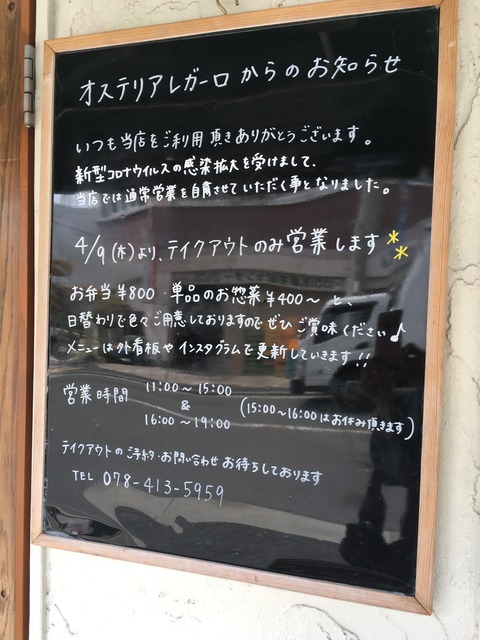 オステリアレガーロ からの お知らせ
いつも当店をご利用 頂きありがとうございます。
新型コロナウイルスの感染拡大を受けまして、
当店では通常営業を自粛させていただく事となりました。
4/9(木)より、テイクアウトのみ営業します
お弁当¥800 ・単品のお惣菜¥400〜 と、
日替わりで色々ご用意しておりますので ぜひ ご賞味ください♪
メニューは外看板や インスタグラムで更新していきます!!
営業時間 11:00〜15:00
&
16:00〜19:00 (15:00〜16:00はお休み頂きます)
テイクアウトの ご予約・お問い合わせ お待ちしております
TEL 078-413-5959